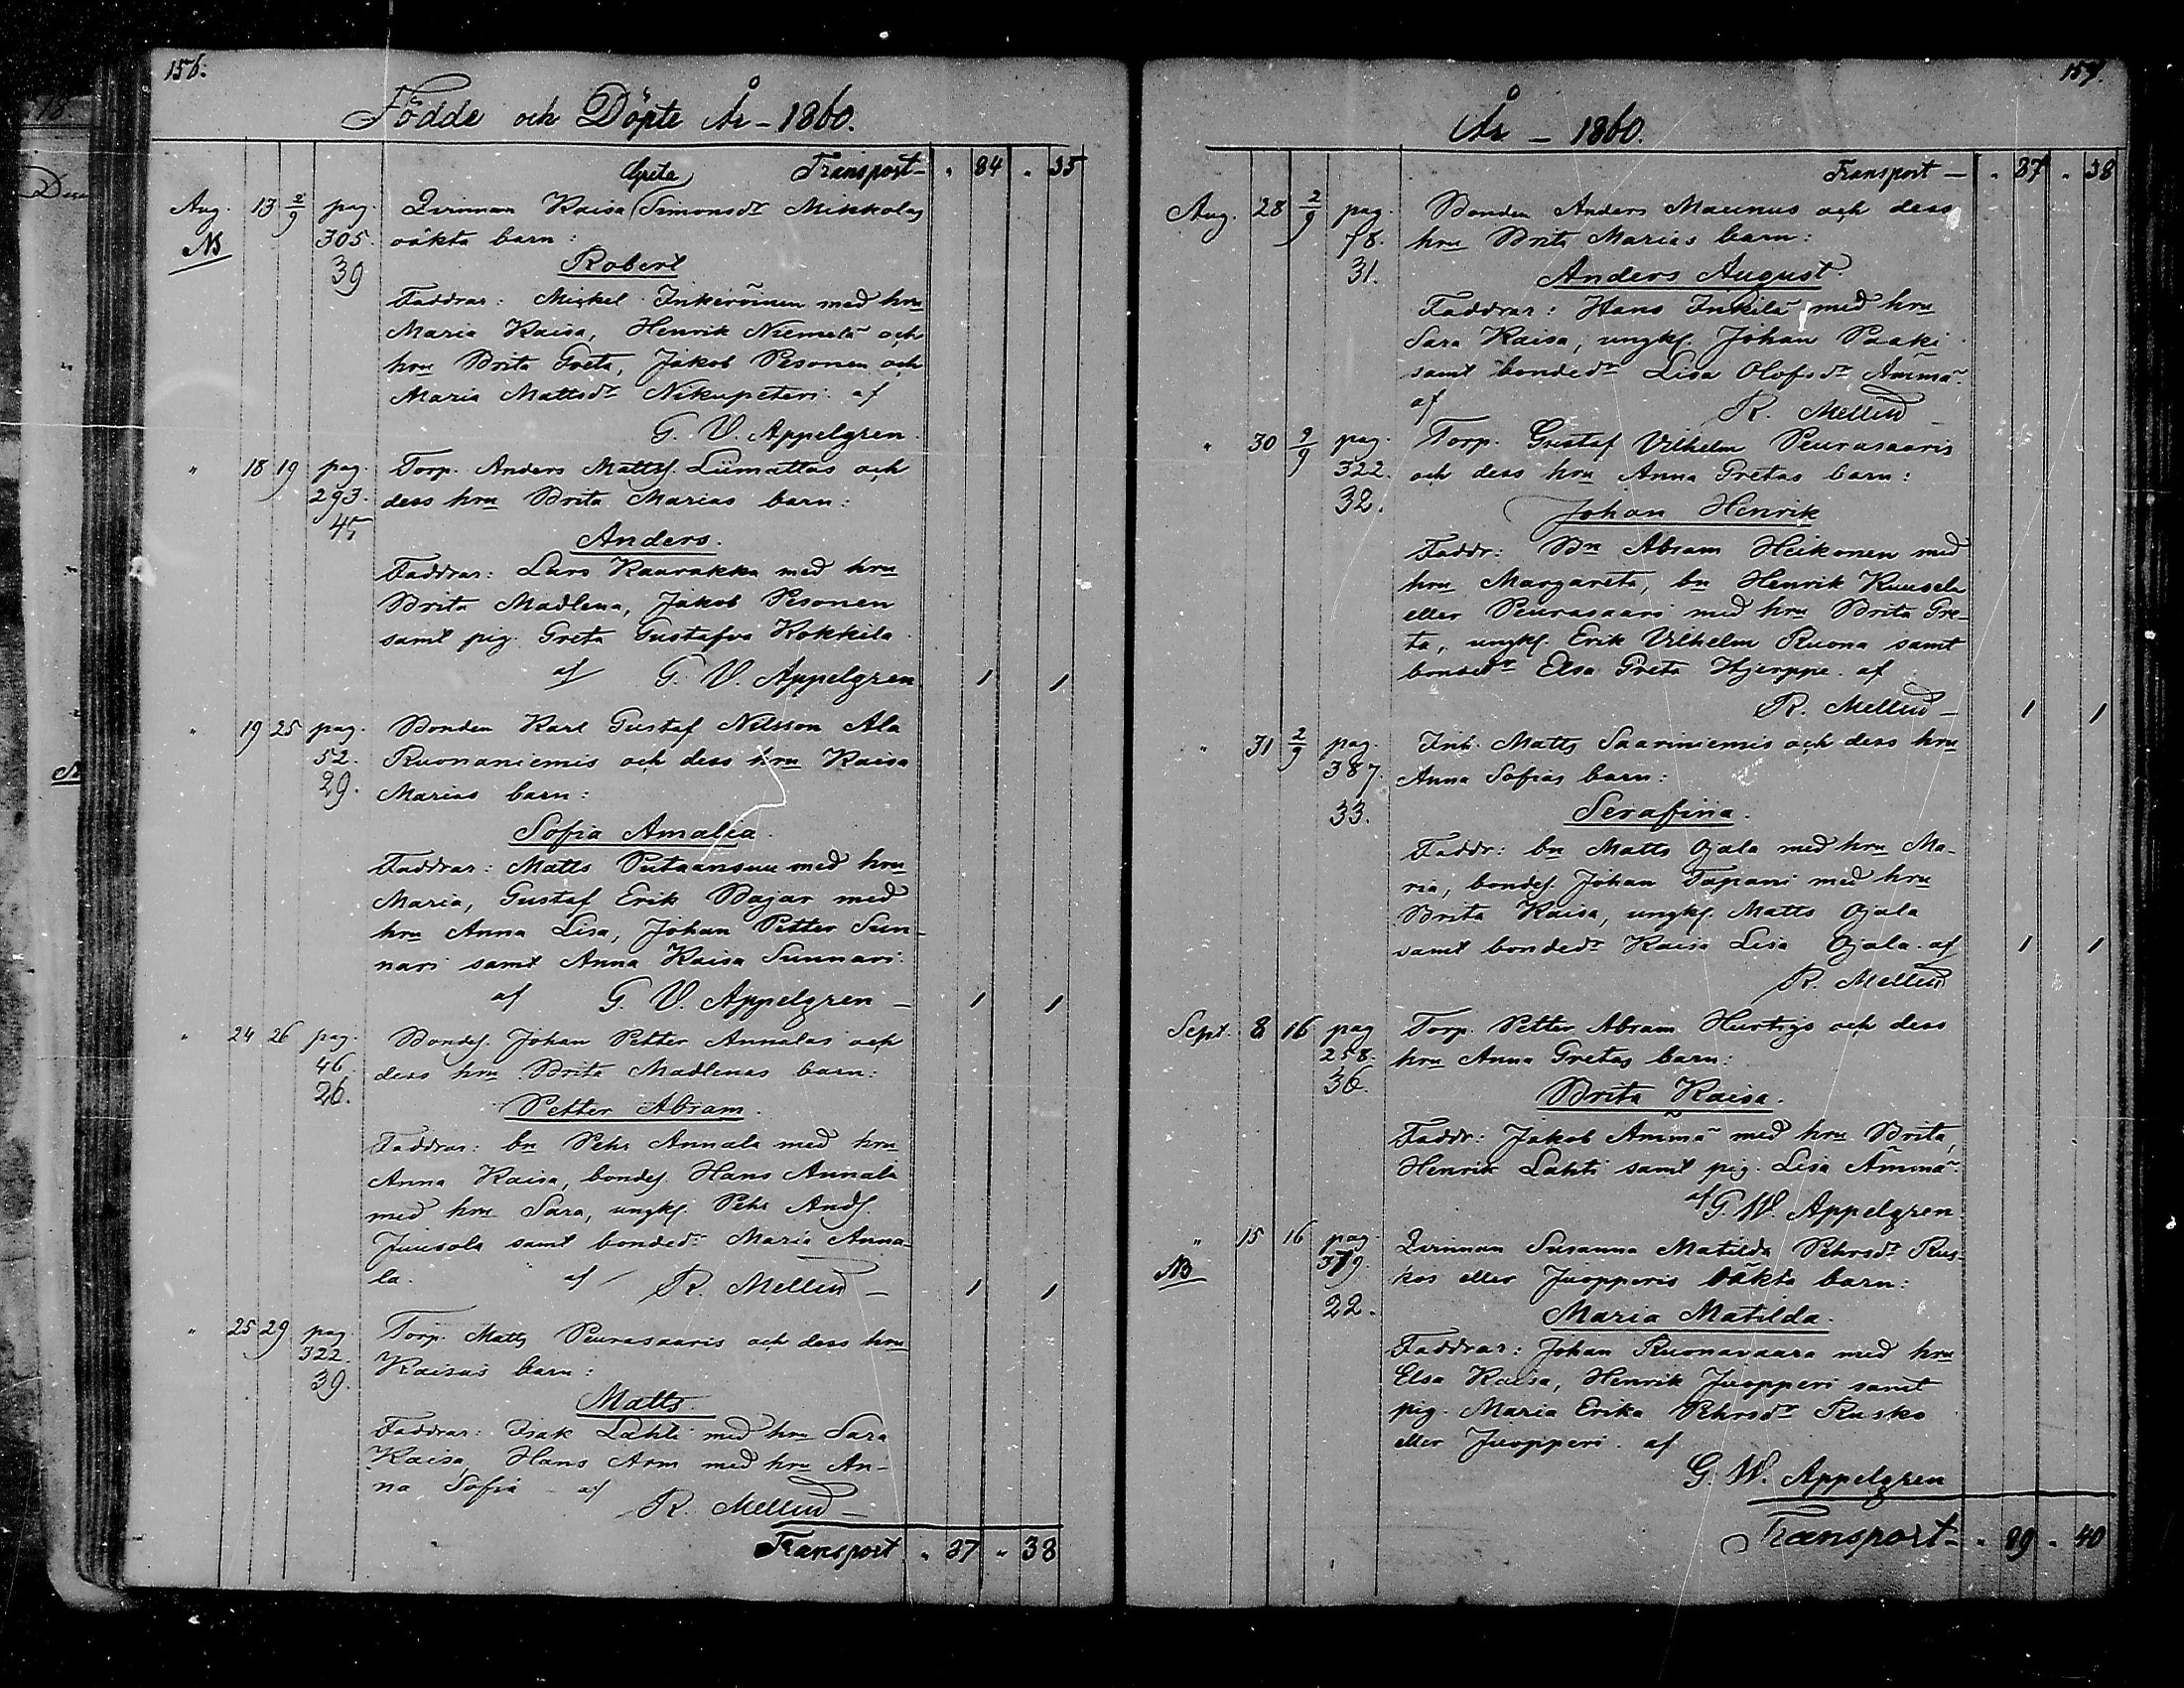 156.
Födde och Döpte År - 1860.
Transport - " 34 " 35
Greta
Aug. 13 2/9 pag. Qvinnan Kaisa Simonsdr Mikkolas
NB 305. oäkta barn:
39 Robert
Faddrar: Mickel Inkeröinen med hru
Maria Kaisa, Henrik Niemelä och
hru Brita Greta, Jakob Pesonen och
Maria Mattsdr Nikupeteri. af
G. V. Appelgren.
" 18 19 pag. Torp. Anders Mattss. Liimattas och
293. dess hru Brita Marias barn:
45 Anders.
Faddrar: Lars Kaarakka med hru
Brita Madlena, Jakob Pesonen
samt pig. Greta Gustafva Kokkila
af G. V. Appelgren 1 1
" 19 25 pag. Bonden Karl Gustaf Nilsson Ala
52. Ruonaniemis och dess hru Kaisa
29. Marias barn:
Sofia Amalia.
Faddrar: Matts Putaansuu med hru
Maria, Gustaf Erik Bajar med
hru Anna Lisa, Johan Petter Sun-
nari samt Anna Kaisa Sunnari.
af G. V. Appelgren - 1 1
" 24 26 pag. Bondes. Johan Petter Annalas och
46. dess hru Brita Madlenas barn:
26. Petter Abram.
Faddrar: bn Pehr Annala med hru
Anna Kaisa, bondes. Hans Annala
med hru Sara, ungk. Pehr Ands.
Juusola samt bondedr Maria Anna-
la. af R. Mellin - 1 1
" 25 29 pag. Torp. Matts Peurasaaris och dess hru
322. Kaisas barn:
39. Matts.
Faddrar: Isak Lahti med hru Sara
Kaisa, Hans Arm med hru An-
na Sofia - af R. Mellin -
Transport " 37 " 38
157.
År - 1860.
Transport - " 37 " 38
Aug. 28 2/9 pag. Bonden Anders Maunus och dess
78. hru Brita Marias barn:
31. Anders August.
Faddrar: Hans Inkilä med hru
Sara Kaisa, ungk. Johan Paaki
samt bondedr Lisa Olofsdr Ämmä.
af R. Mellin -
" 30 9/9 pag. Torp. Gustaf Vilhelm Peurasaaris
322. och dess hru Anna Gretas barn:
32. Johan Henrik
Faddr: Bn Abram Heikonen med
hru Margareta, bn Henrik Kuusela
eller Peurasaari med hru Brita Gre-
ta, ungk. Erik Vilhelm Ruona samt
bondedr Elsa Greta Hjerppe. af
R. Mellin - 1 1
" 31 2/9 pag. Inh. Matts Saariniemis och dess hru
387. Anna Sofias barn:
33. Serafina.
Faddr: bn Matts Ojala med hru Ma-
ria, bondes. Johan Tapani med hru
Brita Kaisa, ungk. Matts Ojala
samt bondedr Kaisa Lisa Ojala. af 1 1
R. Mellin
Sept. 8 16 pag. Torp. Petter Abram Hurtigs och dess
258. hru Anna Gretas barn:
36. Brita Kaisa.
Faddr: Jakob Ämmä med hru Brita,
Henrik Lahti samt pig. Lisa Ämmä.
af G. W. Appelgren
" 15 16 pag. Qvinnan Susanna Matilda Pehrsdr Rus-
NB 379. kos eller Juopperis oäkta barn:
22. Maria Matilda.
Faddrar: Johan Ruonavaara med hru
Elsa Kaisa, Henrik Juopperi samt
pig. Maria Erika Pehrsdr Rusko
eller Juopperi. af
G. W. Appelgren
Transport - " 39 " 40